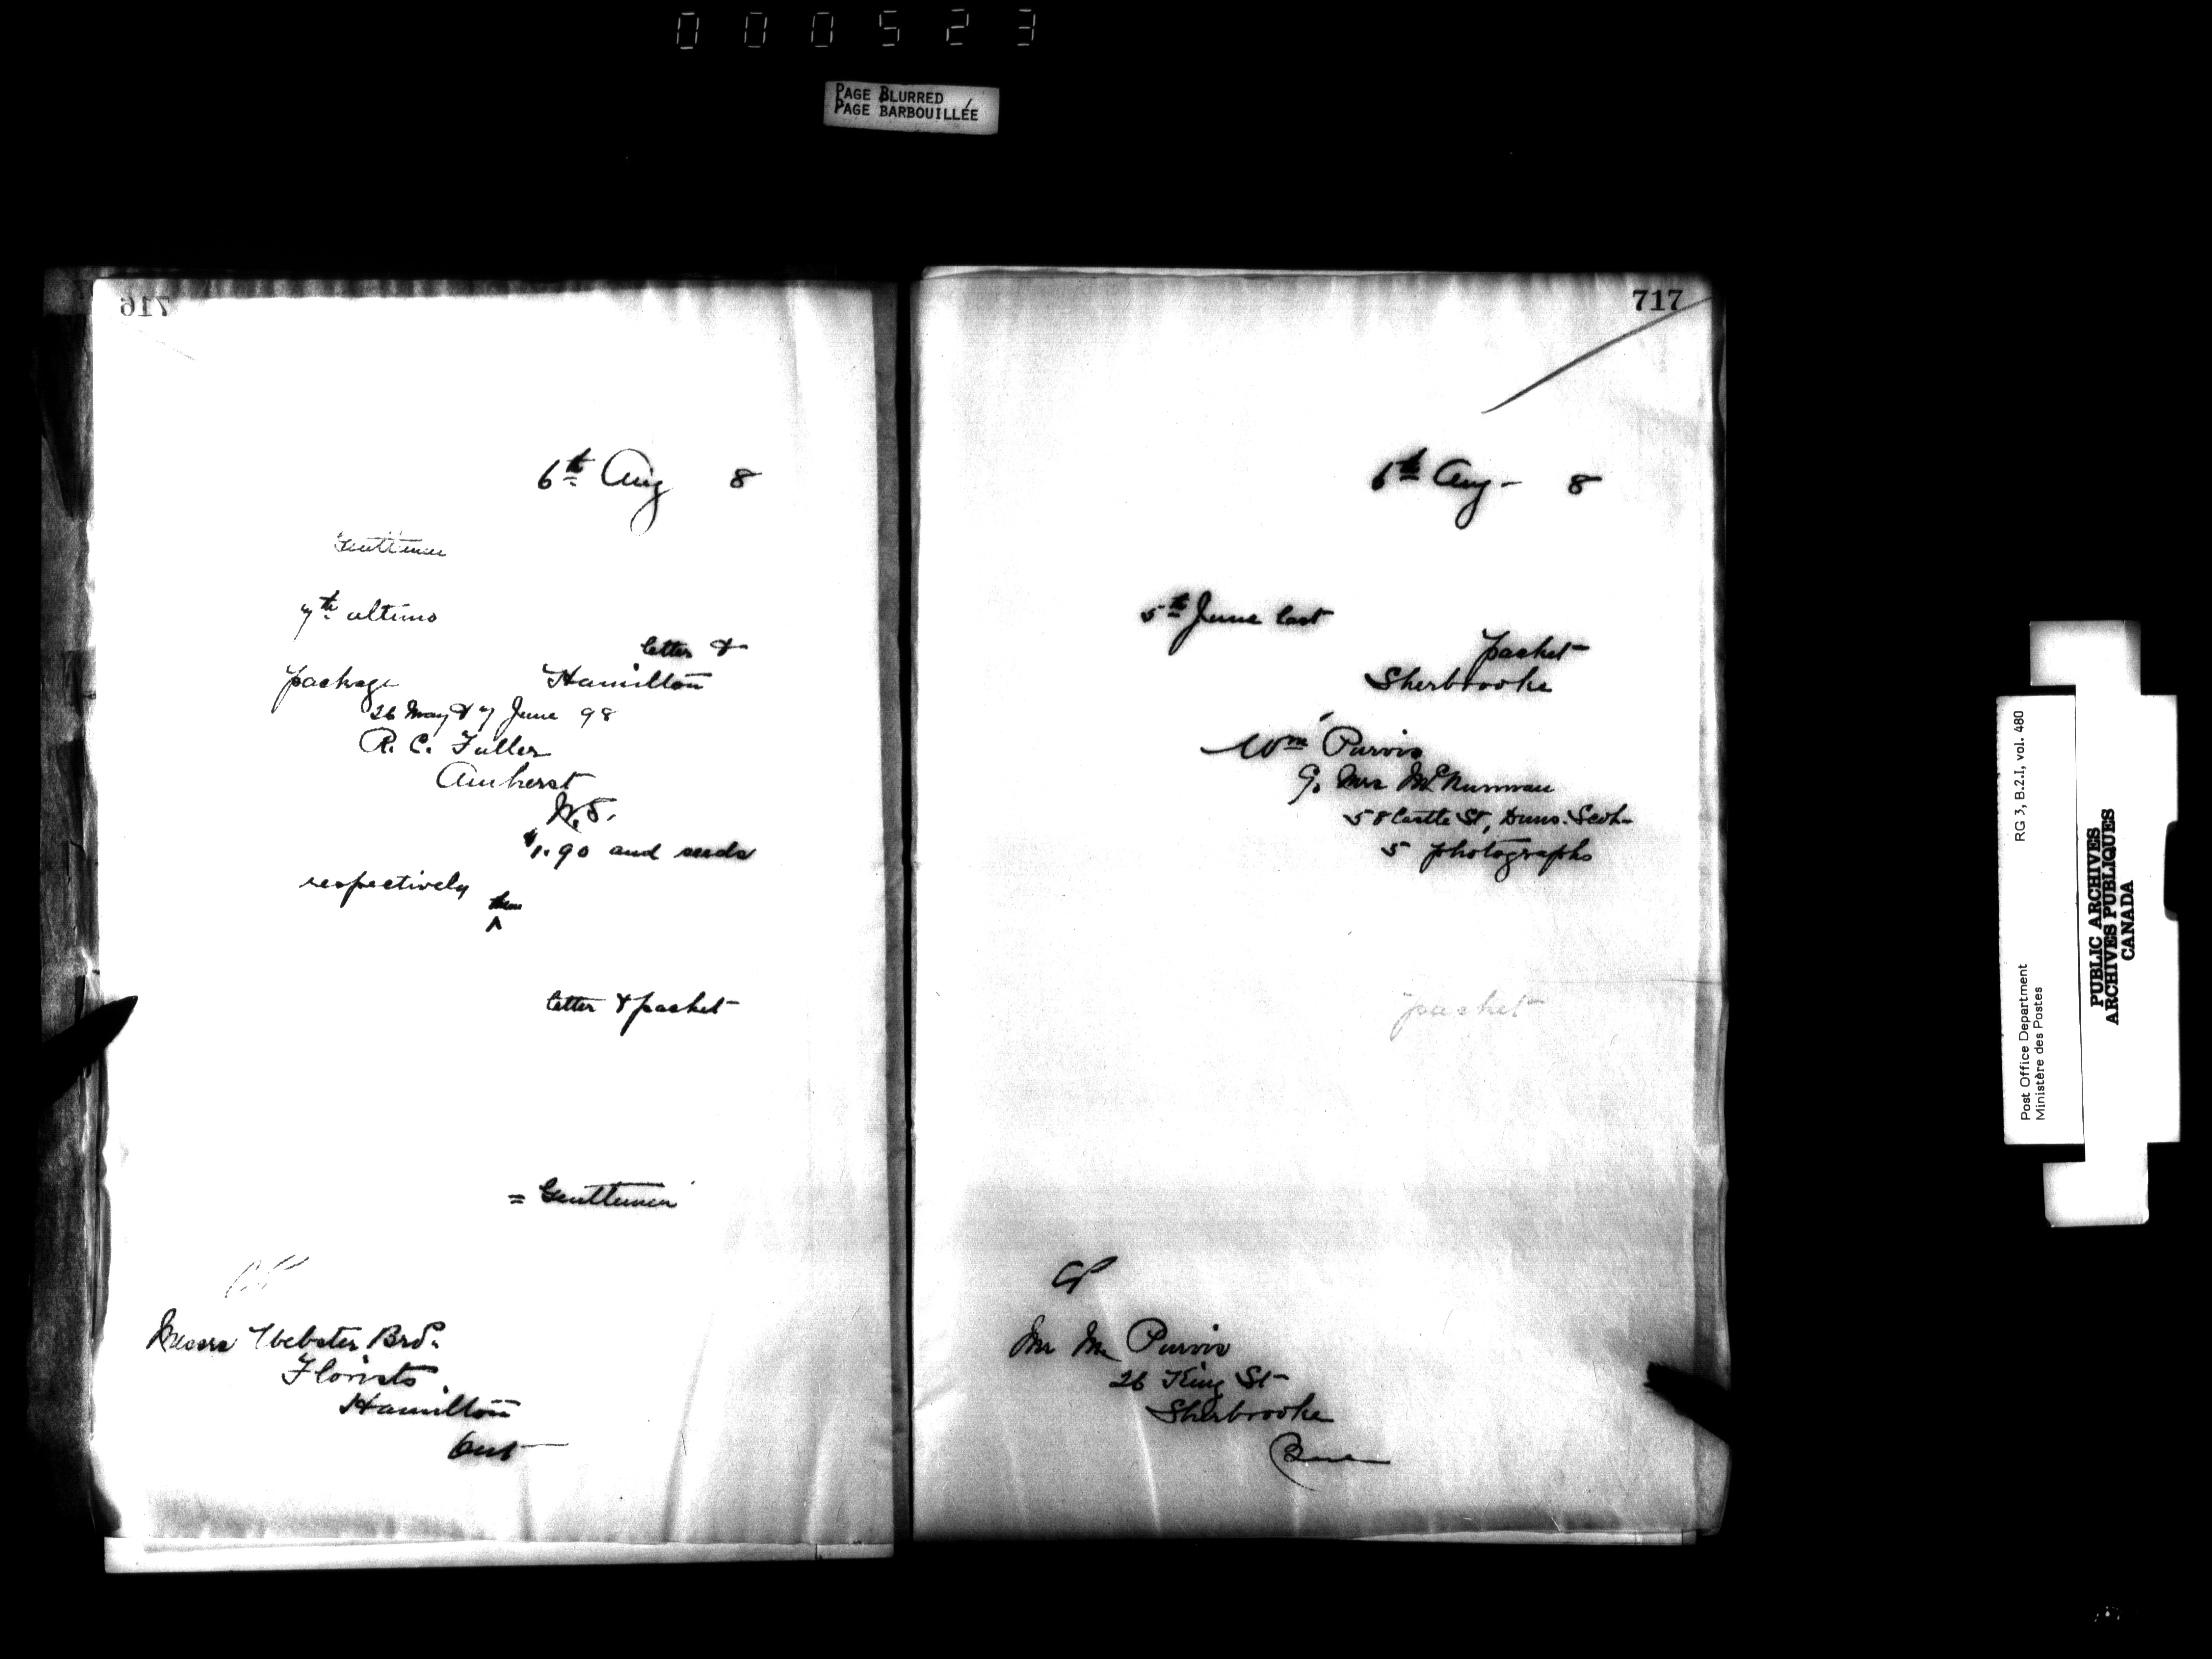 000523
PAGE BLURRED
PAGE BARBOUILLÉE
716
6th Aug 8
Gentlemen
7th ultimo
letter &
package Hamilton
26 May & 7 June 98
R. C. Fuller
Amherst
N.S.
$1.90 and seeds
respectively
them
^
letter & packet
= Gentlemen
Messrs Webster Bros.
Florists
Hamilton
Ont
717
6th Aug - 8
5th June last
packet
Sherbrooke
Wm Purvis
58 Castle St, Duns. Scot
5 photographs
packet
Mr Purvis
26 King St
Sherbrooke
Que
RG 3, B.2.I, vol. 480
Post Office Department
Ministère des Postes
PUBLIC ARCHIVES
ARCHIVES PUBLIQUES
CANADA